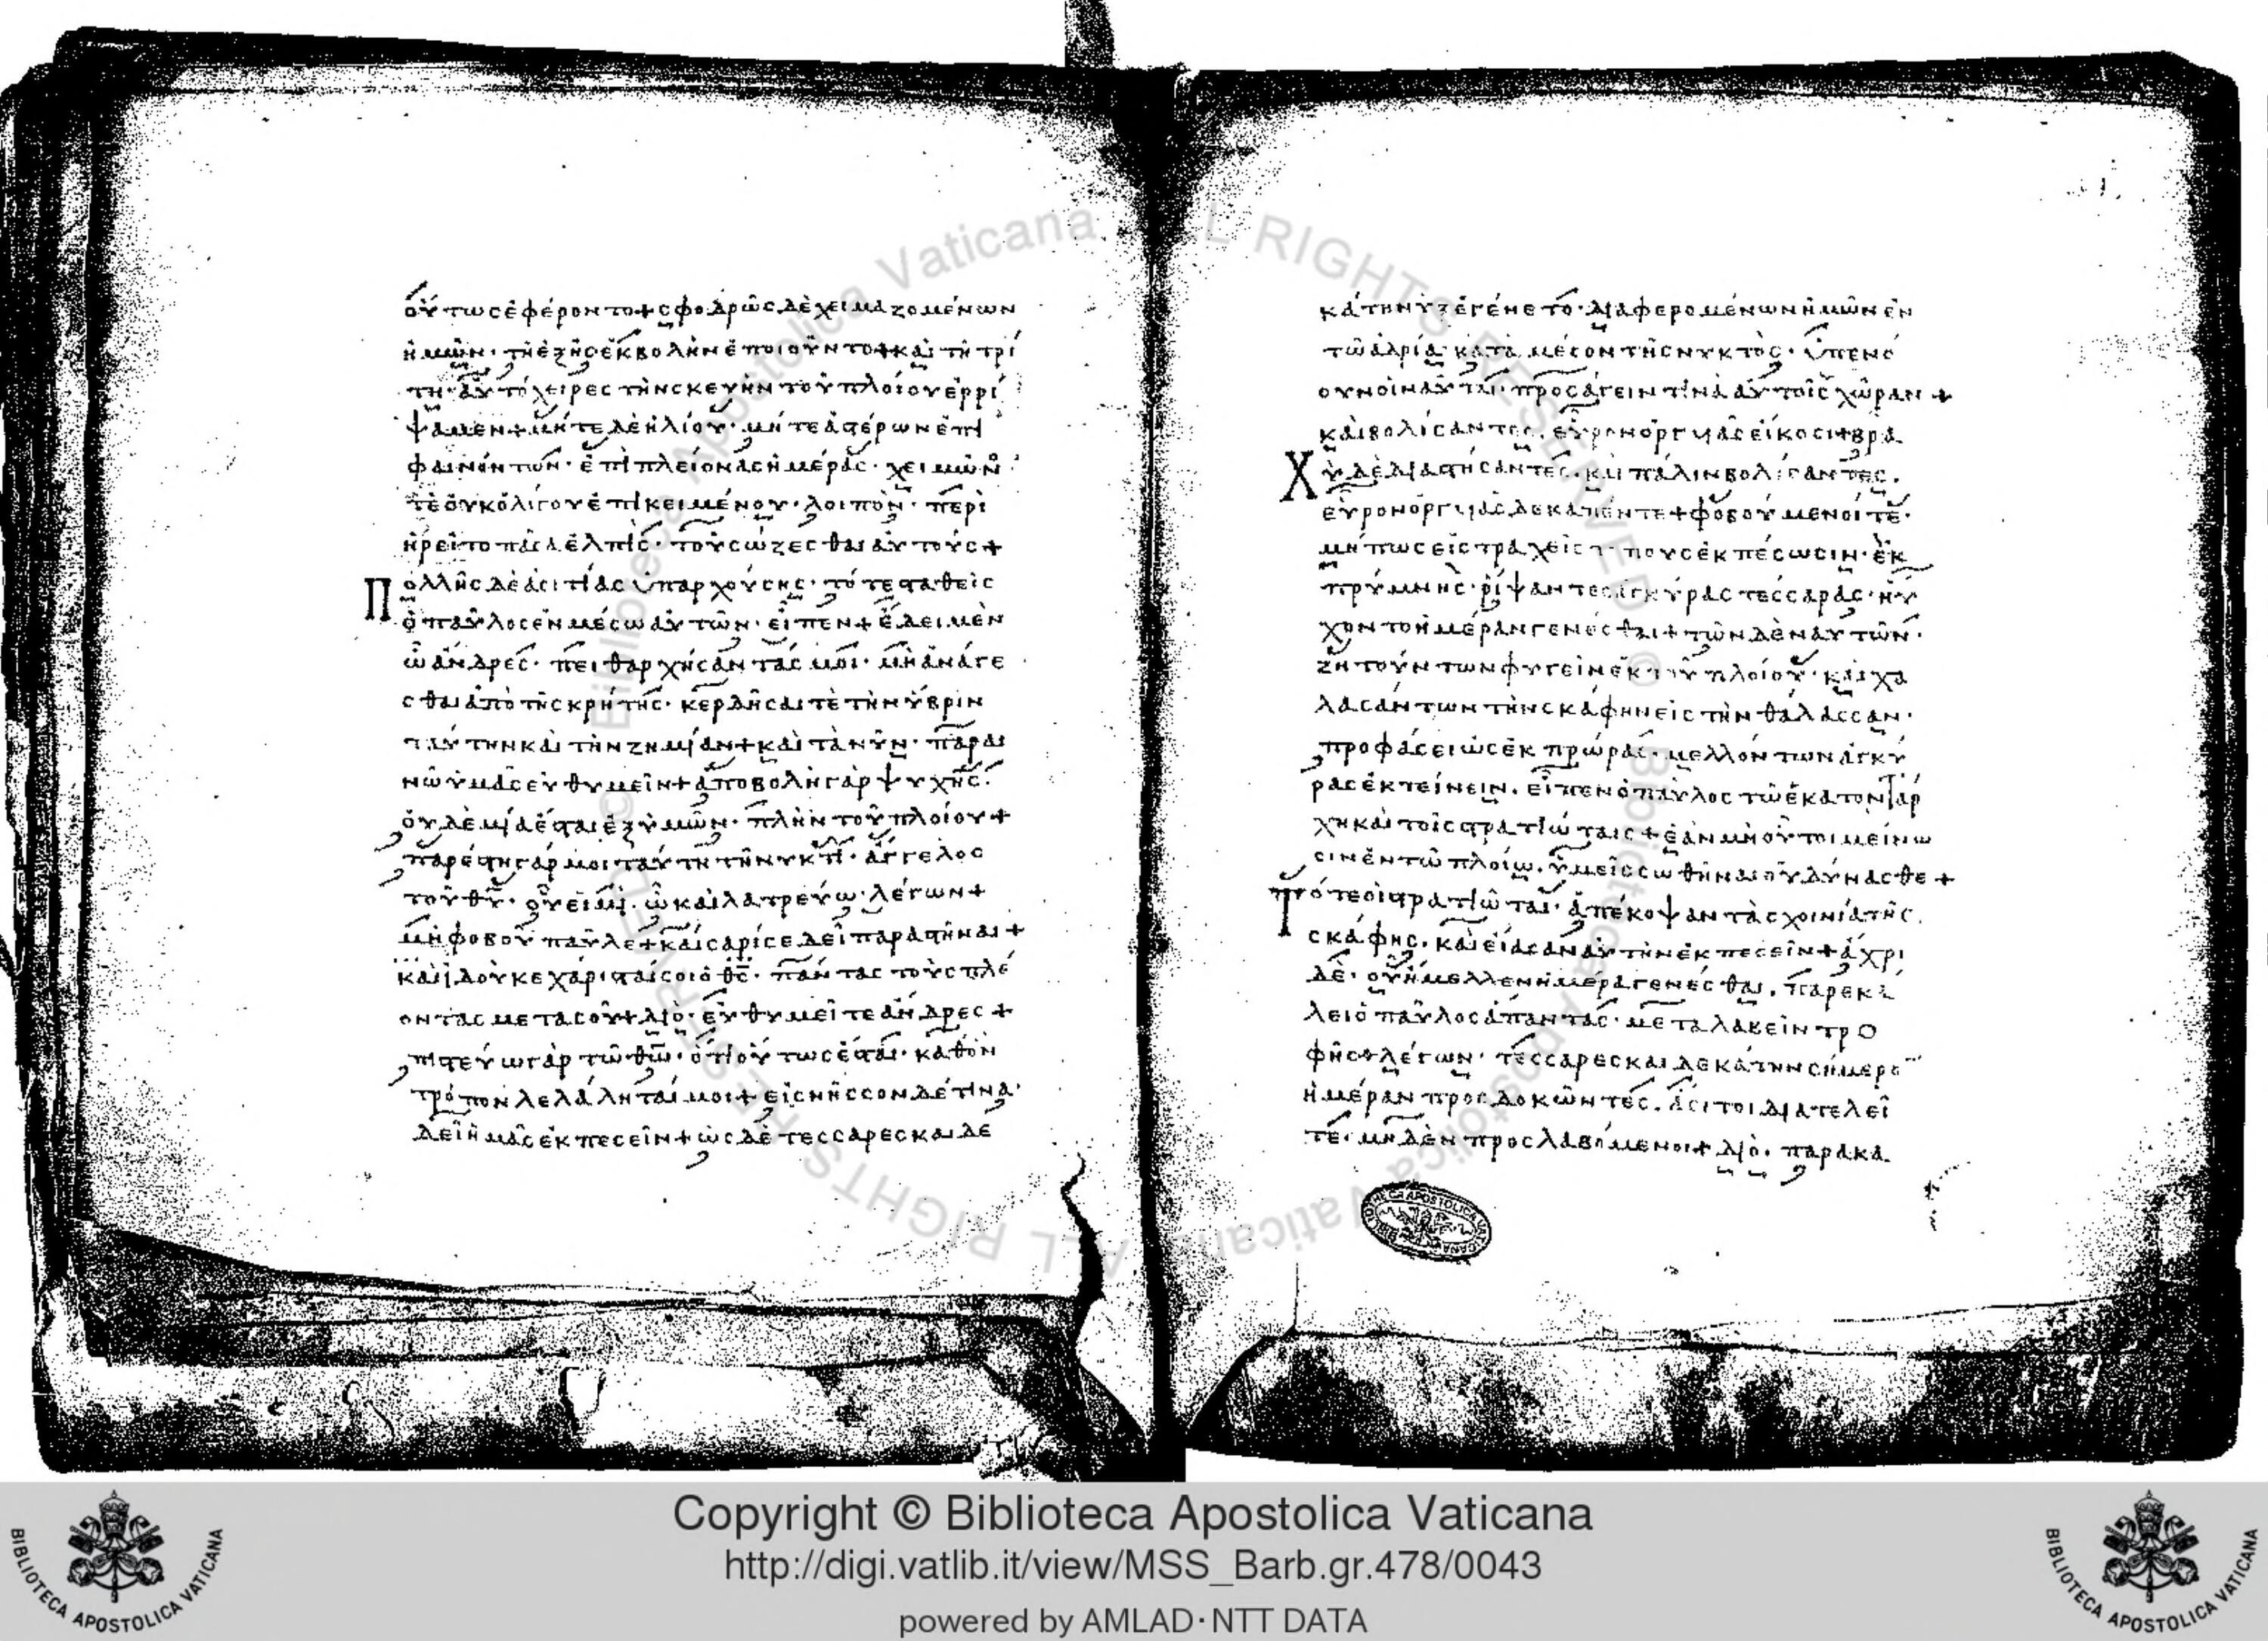 οὕτως ἐφέροντο + σφοδρῶς δὲ χειμαζομένων
ἡμῶν · τῇ ἑξῆς ἐκβολὴν ἐποιοῦντο + καὶ τῇ τρί
τῃ · αὐτόχειρες τὴν σκευὴν τοῦ πλοίου ἐρρί
ψαμεν + μήτε δὲ ἡλίου · μήτε ἀστέρων ἐπι
φαινόντων · ἐπὶ πλείονας ἡμέρας · χειμῶν
τὲ οὐκ ὀλίγου ἐπικειμένου · λοιπὸν · περι
ηρεῖτο πᾶσα ἐλπὶς · τοῦ σώζεσθαι αὐτούς +
Πολλῆς δὲ ἀσιτίας ὑπαρχούσης · τότε σταθεὶς
ὁ παῦλος ἐν μέσω αὐτῶν · εἶπεν + ἔδει μὲν
ὦ ἄνδρες · πειθαρχήσαντάς μοι · μὴ ἀνάγε
σθαι ἀπὸ τῆς κρήτης · κερδῆσαι τὲ τὴν ὕβριν
ταύτην καὶ τὴν ζημίαν + καὶ τὰ νῦν · παραι
νῶ ὑμᾶς εὐθυμεῖν + ἀποβολὴ γὰρ ψυχῆς ·
οὐδὲ μία ἔσται ἐξ ὑμῶν · πλὴν τοῦ πλοίου +
παρέστη γάρ μοι ταύτη τῆ νυκτὶ · ἄγγελος
τοῦ θυ · οὗ εἰμὶ · ὧ καὶ λατρεύω · λέγων +
μὴ φοβοῦ παῦλε + καίσαρί σε δεῖ παραστῆναι +
καὶ ἰδοὺ κεχάρισταί σοι ὁ θς · πάντας τοὺς πλέ
οντας μετὰ σοῦ + διὸ · εὐθυμεῖτε ἄνδρες +
πιστεύω γὰρ τῶ θω · ὅτι οὕτως ἔσται · καθ ὃν
τρόπον λελάληταί μοι + εἰς νῆσσον δέ τινα
δεῖ ἡμᾶς ἐκπεσεῖν + ὡς δὲ τεσσαρεσκαιδε
κάτη νὺξ ἐγένετο · διαφερομένων ἡμῶν ἐν
τῶ ἀδρία · κατὰ μέσον τῆς νυκτὸς · ὑπενό
ουν οἱ ναῦται · προσάγειν τινὰ αὐτοῖς χῶραν +
καὶ βολίσαντες · εὗρον ὀργυιὰς εἴκοσι + βρα
Χὺ δὲ διαστήσαντες · καὶ πάλιν βολίσαντες ·
εὗρον ὀργυιὰς δεκαπέντε + φοβούμενοί τε ·
μήπως εἰς τραχεῖς τόπους ἐκπέσωσιν · ἐκ
πρύμνης · ῥίψαντες ἀγκύρας τέσσαρας · ηὔ
χοντο ἡμέραν γενέσθαι + τῶν δὲ ναυτῶν ·
ζητούντων φυγεῖν ἐκ τοῦ πλοίου · καὶ χα
λασάντων τὴν σκάφην εἰς τὴν θάλασσαν ·
προφάσει ὡς ἐκ πρώρας · μελλόντων ἀγκύ
ρας ἐκτείνειν · εἶπεν ὁ παῦλος τῶ ἑκατοντάρ
χη καὶ τοῖς στρατιώταις + ἐὰν μὴ οὗτοι μείνω
σιν ἐν τῶ πλοίω · ὑμεῖς σωθῆναι οὐ δύνασθε +
Τότε οἱ στρατιῶται · ἀπέκοψαν τὰ σχοινία τῆς
σκάφης · καὶ εἴασαν αὐτὴν ἐκπεσεῖν + ἄχρι
δὲ · οὗ ἤμελλεν ἡμέρα γενέσθαι · παρεκά
λει ὁ παῦλος ἅπαντας · μεταλαβεῖν τρο
φῆς + λέγων · τεσσαρεσκαιδεκάτην σήμερον
ἡμέραν προσδοκῶντες · ἄσιτοι διατελεῖ
τε · μηδὲν προσλαβόμενοι + διὸ · παρακα
BIBLIOTECA APOSTOLICA VATICANA
Copyright © Biblioteca Apostolica Vaticana
http://digi.vatlib.it/view/MSS_Barb.gr.478/0043
powered by AMLAD · NTT DATA
BIBLIOTECA APOSTOLICA VATICANA